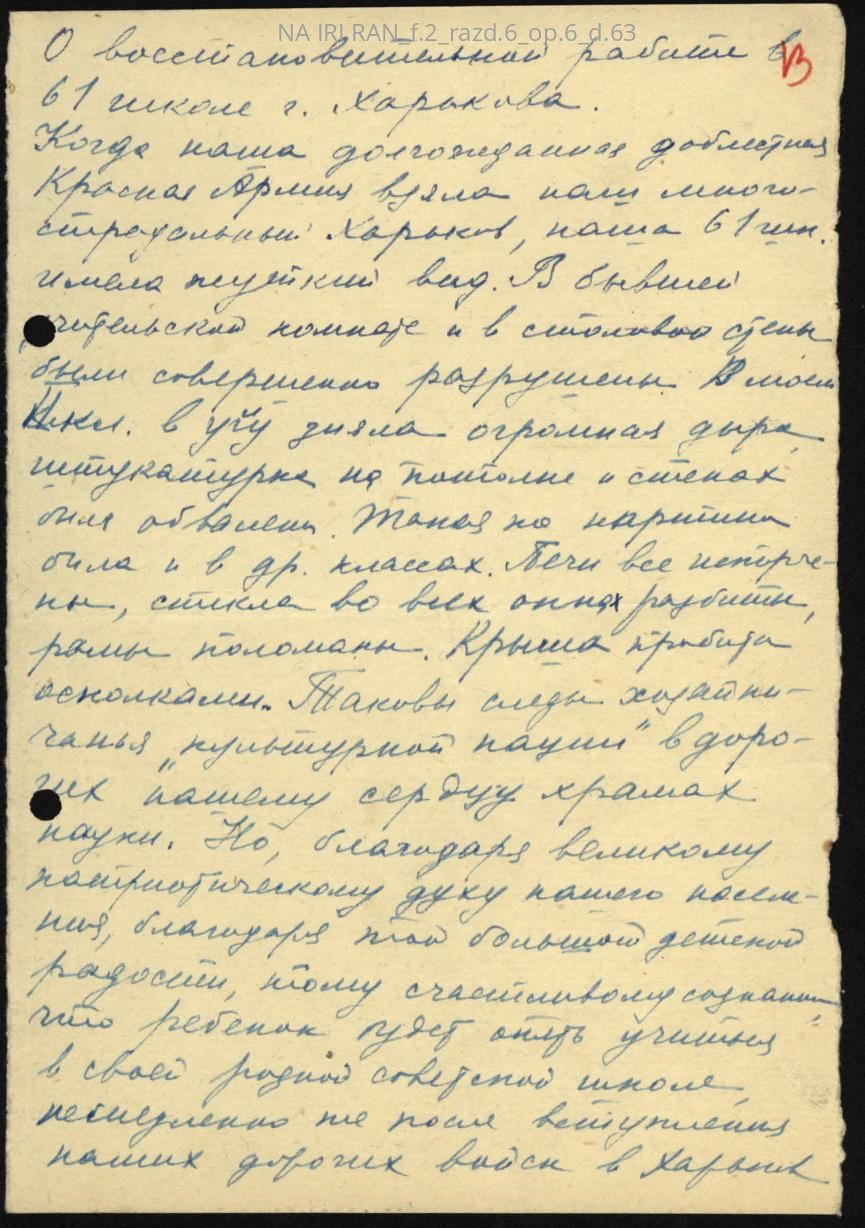 NA IRI RAN_f.2_razd.6_op.6_d.63
О восстановительной работе в
61 школе г. Харькова.
Когда наша долгожданная доблестная
Красная Армия взяла наш много-
страдальный Харьков, наша 61 шк.
имела жуткий вид. В бывшей
учительской комнате и в столовой стены
были совершенно разрушены. В моем
кл. в углу зияла огромная дыра,
штукатурка на потолке и стенах
была обвалена. Такая же картина
была и в др. классах. Печи все испорче-
ны, стекла во всех окнах разбиты,
рамы поломаны. Крыша пробита
осколками. Таковы следы хозяйни-
чанья „культурной нации" в доро-
гих нашему сердцу храмах
науки. Но, благодаря великому
патриотическому духу нашего населе-
ния, благодаря той большой детской
радости, тому счастливому сознанию,
что ребенок будет опять учиться
в своей родной советской школе,
немедленно же после вступления
наших дорогих войск в Харьков